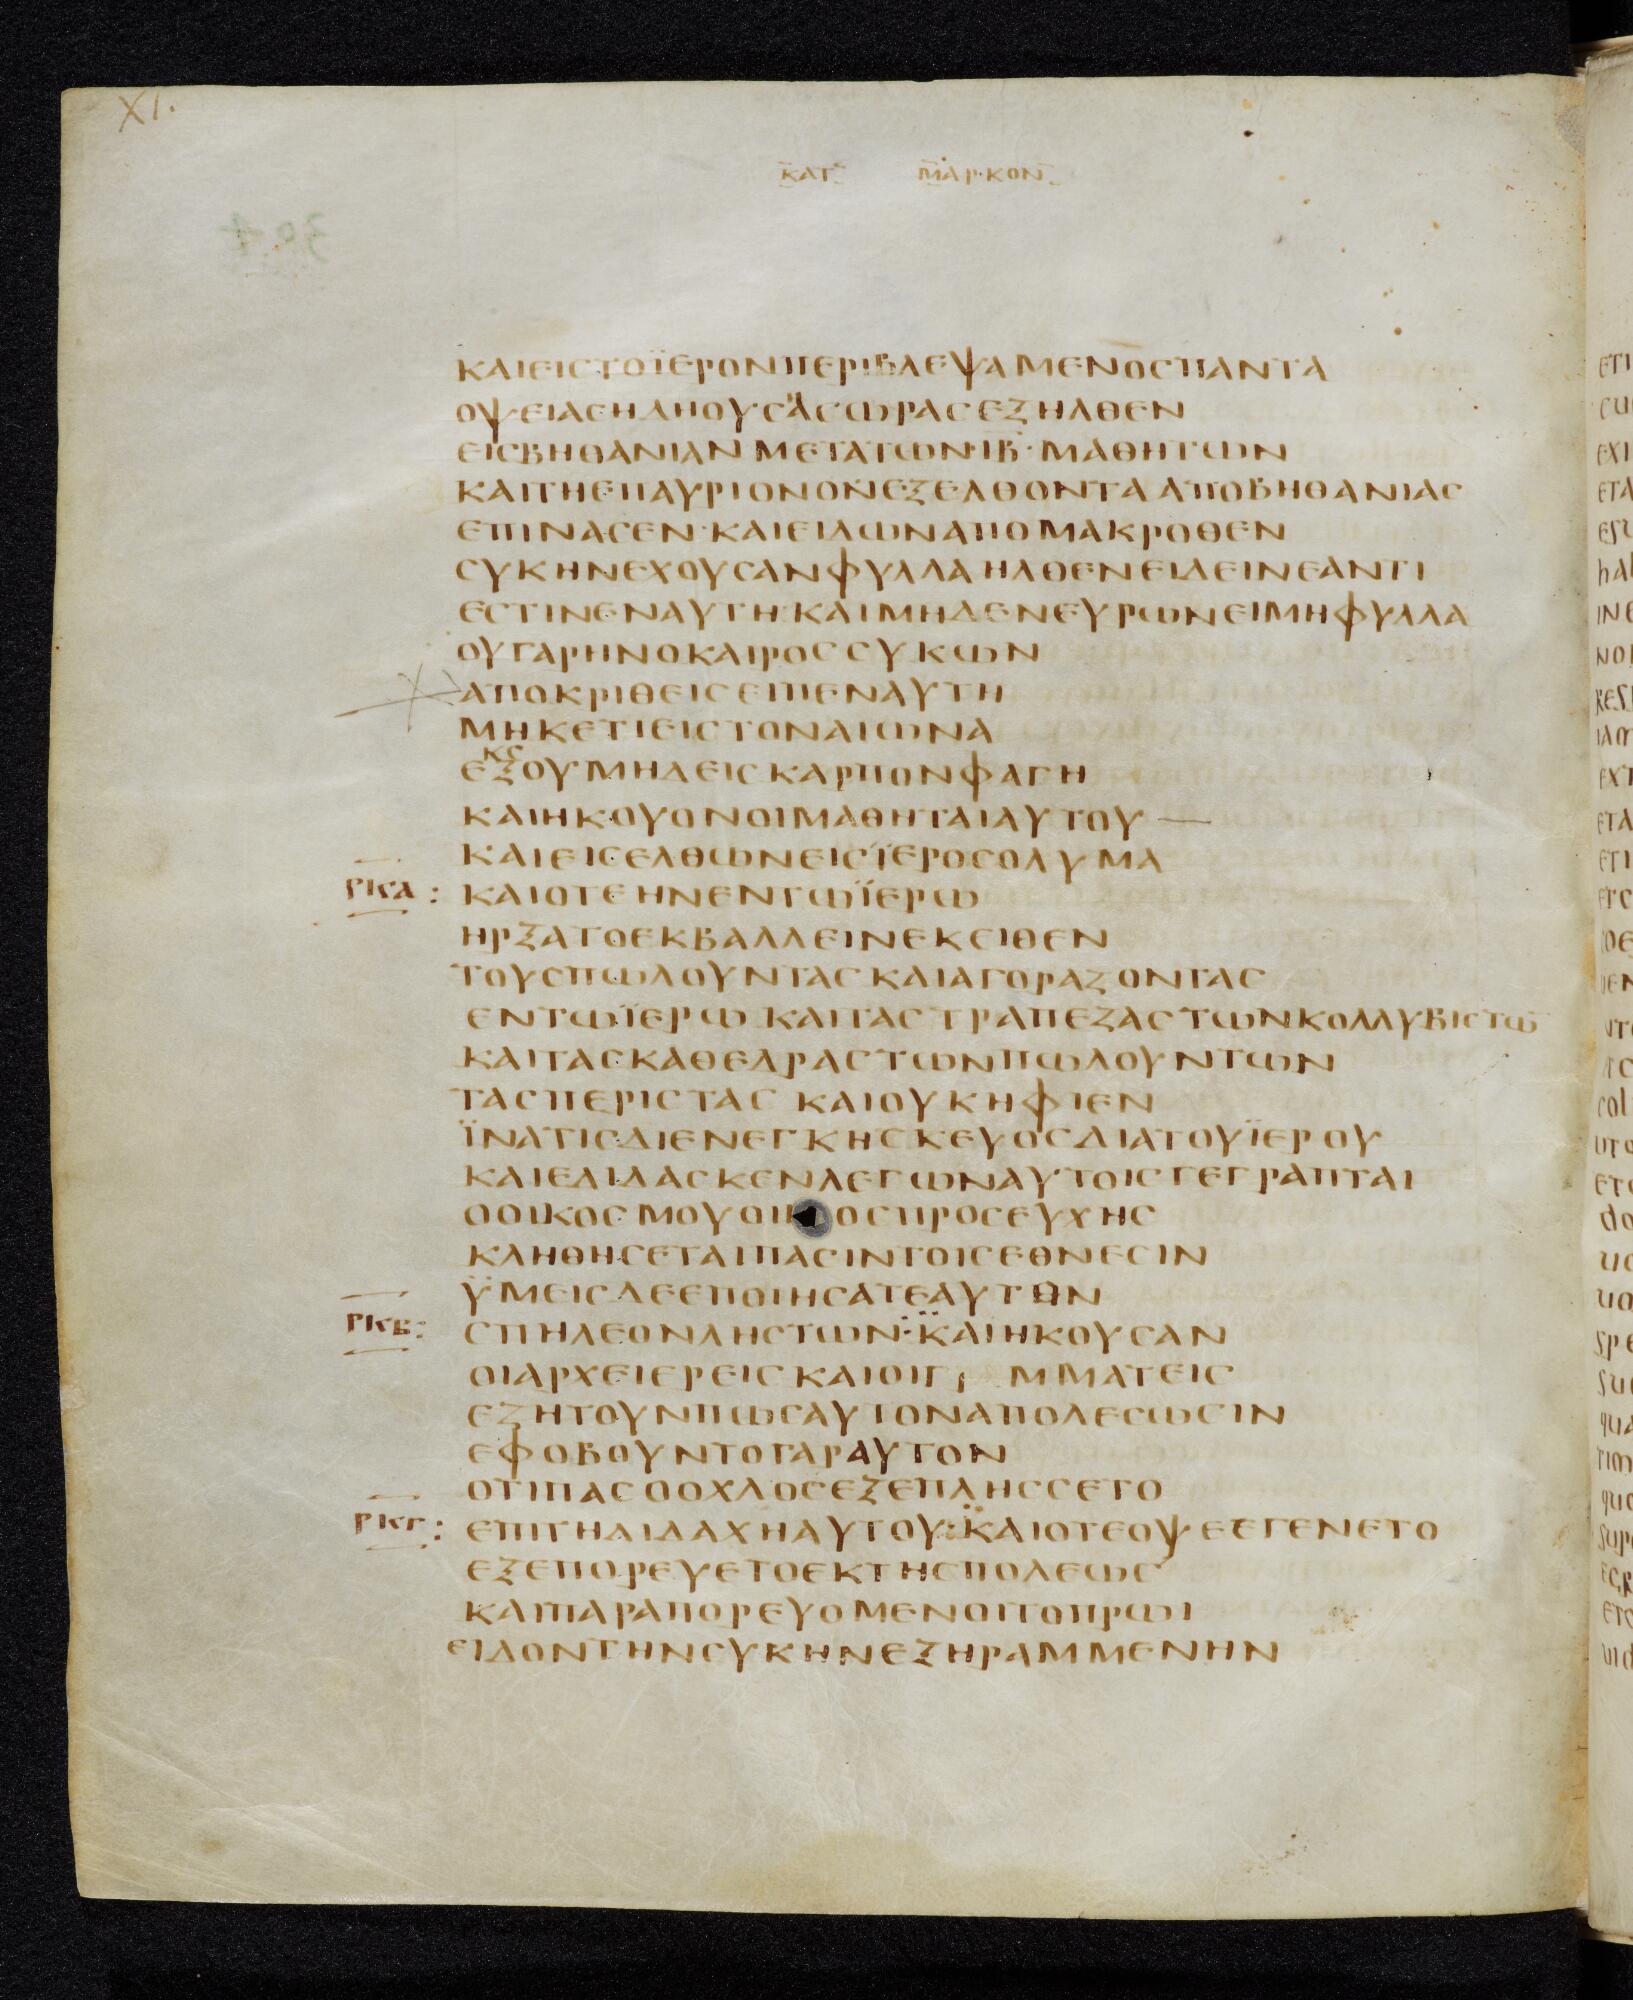 XI.
ΚΑΤ ΜΑΡΚΟΝ
304
ΚΑΙΕΙΣΤΟΪΕΡΟΝΠΕΡΙΒΛΕΨΑΜΕΝΟΣΠΑΝΤΑ
ΟΨΕΙΑΣΗΔΗΟΥΣΑΣΩΡΑΣΕΞΗΛΘΕΝ
ΕΙΣΒΗΘΑΝΙΑΝΜΕΤΑΤΩΝ·ΙΒ·ΜΑΘΗΤΩΝ
ΚΑΙΤΗΕΠΑΥΡΙΟΝΟΝΕΞΕΛΘΟΝΤΑΑΠΟΒΗΘΑΝΙΑΣ
ΕΠΙΝΑΣΕΝ·ΚΑΙΕΙΔΩΝΑΠΟΜΑΚΡΟΘΕΝ
ΣΥΚΗΝΕΧΟΥΣΑΝΦΥΛΛΑΗΛΘΕΝΕΙΔΕΙΝΕΑΝΤΙ
ΕΣΤΙΝΕΝΑΥΤΗ·ΚΑΙΜΗΔΕΝΕΥΡΩΝΕΙΜΗΦΥΛΛΑ
ΟΥΓΑΡΗΝΟΚΑΙΡΟΣΣΥΚΩΝ
ΑΠΟΚΡΙΘΕΙΣΕΙΠΕΝΑΥΤΗ
ΜΗΚΕΤΙΕΙΣΤΟΝΑΙΩΝΑ
ΚΣ
ΕΞΟΥΜΗΔΕΙΣΚΑΡΠΟΝΦΑΓΗ
ΚΑΙΗΚΟΥΟΝΟΙΜΑΘΗΤΑΙΑΥΤΟΥ
ΚΑΙΕΙΣΕΛΘΩΝΕΙΣΪΕΡΟΣΟΛΥΜΑ
ΡΚΑ : ΚΑΙΟΤΕΗΝΕΝΤΩΪΕΡΩ
ΗΡΞΑΤΟΕΚΒΑΛΛΕΙΝΕΚΕΙΘΕΝ
ΤΟΥΣΠΩΛΟΥΝΤΑΣΚΑΙΑΓΟΡΑΖΟΝΤΑΣ
ΕΝΤΩΪΕΡΩ ΚΑΙΤΑΣΤΡΑΠΕΖΑΣΤΩΝΚΟΛΛΥΒΙΣΤΩ̅
ΚΑΙΤΑΣΚΑΘΕΔΡΑΣΤΩΝΠΩΛΟΥΝΤΩΝ
ΤΑΣΠΕΡΙΣΤΑΣ ΚΑΙΟΥΚΗΦΙΕΝ
ΪΝΑΤΙΣΔΙΕΝΕΓΚΗΣΚΕΥΟΣΔΙΑΤΟΥΪΕΡΟΥ
ΚΑΙΕΔΙΔΑΣΚΕΝΛΕΓΩΝΑΥΤΟΙΣΓΕΓΡΑΠΤΑΙ
ΟΟΙΚΟΣΜΟΥΟΙΚΟΣΠΡΟΣΕΥΧΗΣ
ΚΛΗΘΗΣΕΤΑΙΠΑΣΙΝΤΟΙΣΕΘΝΕΣΙΝ
ΫΜΕΙΣΔΕΕΠΟΙΗΣΑΤΕΑΥΤΟΝ
ΡΚΒ: ΣΠΗΛΕΟΝΛΗΣΤΩΝ:ΚΑΙΗΚΟΥΣΑΝ
ΟΙΑΡΧΕΙΕΡΕΙΣΚΑΙΟΙΓΡ ΜΜΑΤΕΙΣ
ΕΖΗΤΟΥΝΠΩΣΑΥΤΟΝΑΠΟΛΕΣΩΣΙΝ
ΕΦΟΒΟΥΝΤΟΓΑΡΑΥΤΟΝ
ΟΤΙΠΑΣΟΟΧΛΟΣΕΞΕΠΛΗΣΣΕΤΟ
ΡΚΓ: ΕΠΙΤΗΔΙΔΑΧΗΑΥΤΟΥ:ΚΑΙΟΤΕΟΨΕΕΓΕΝΕΤΟ
ΕΞΕΠΟΡΕΥΕΤΟΕΚΤΗΣΠΟΛΕΩΣ
ΚΑΙΠΑΡΑΠΟΡΕΥΟΜΕΝΟΙΤΟΠΡΩΙ
ΕΙΔΟΝΤΗΝΣΥΚΗΝΕΞΗΡΑΜΜΕΝΗΝ